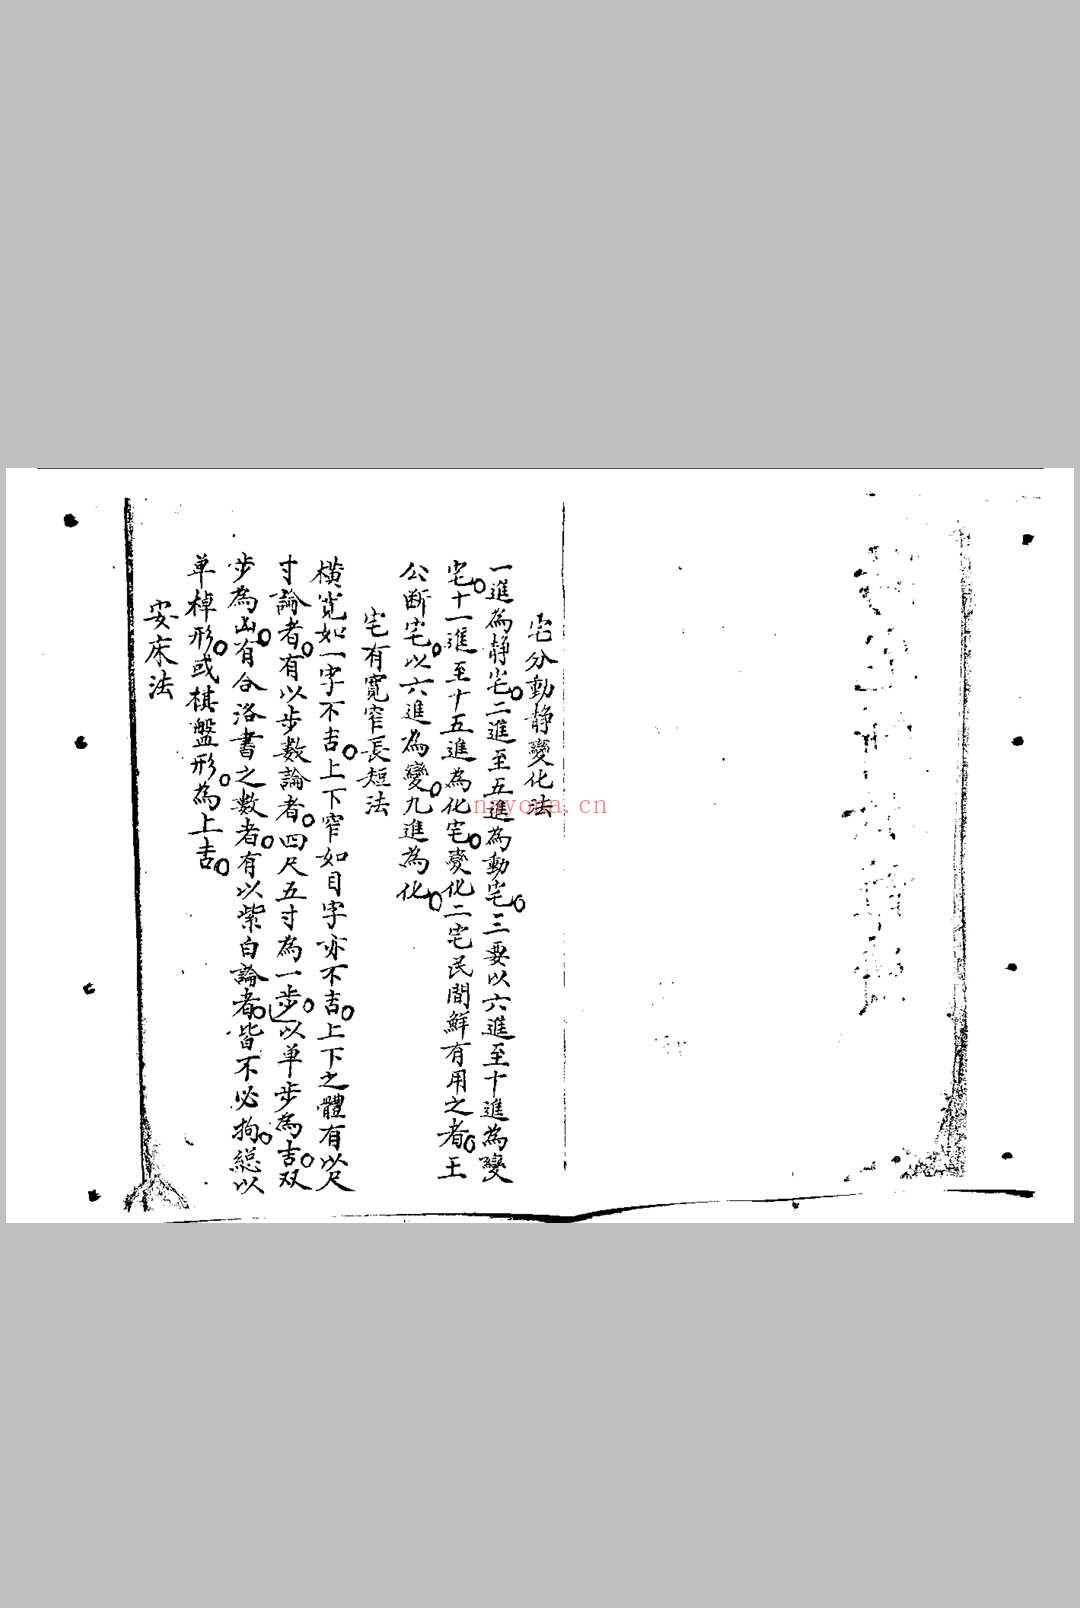 宅分動静變化法
一進為静宅。二進至五進為動宅。三要以六進至十進為變
宅。十一進至十五進為化宅。變化二宅民間鮮有用之者。王
公断宅。以六進為變。九進為化。
宅有寬窄長短法
橫寬如一字不吉。上下窄如目字亦不吉。上下之體有以尺
寸論者。有以步數論者。四尺五寸為一步。以单步為吉。双
步為凶。有合洛書之數者。有以紫白論者。皆不必拘。總以
单棹形。或棋盤形。為上吉。
安床法
nayona.cn